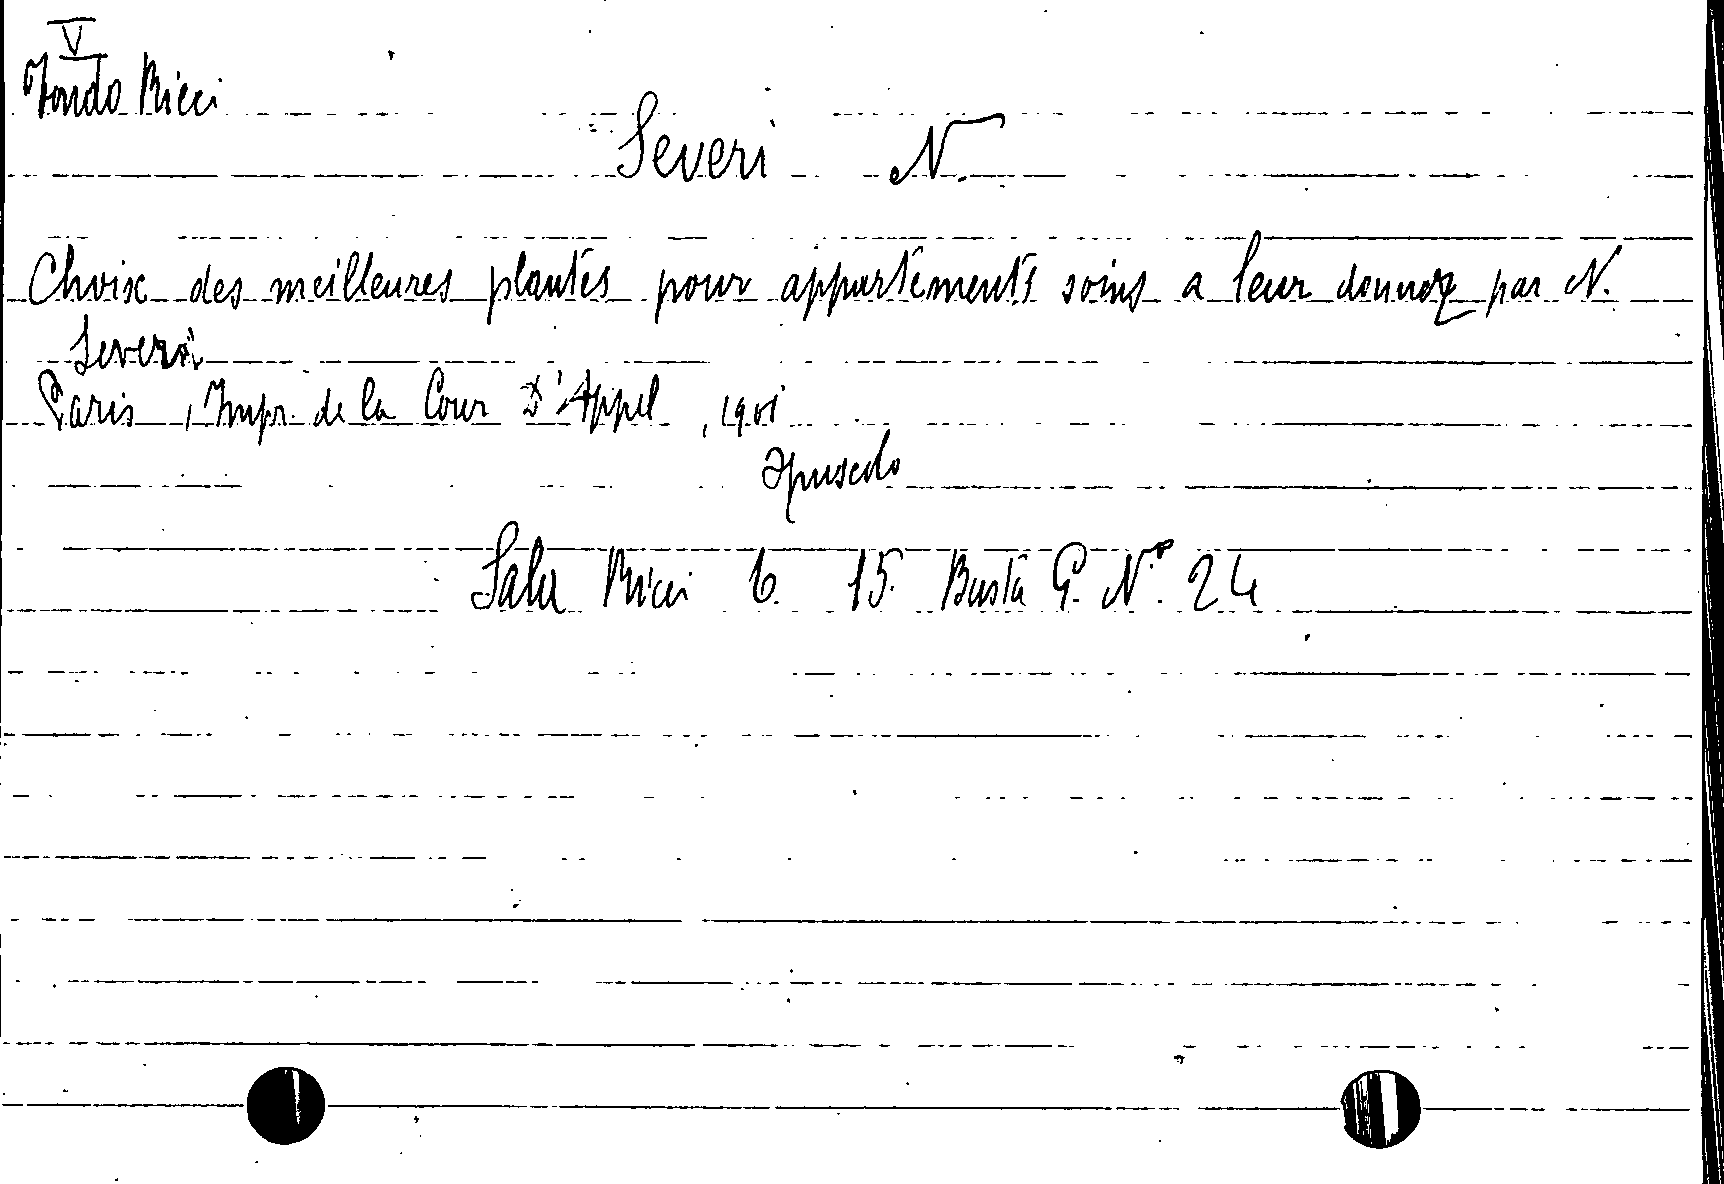 V
Fondo Ricci
Severi N.
Choix des meilleures plantes pour appartements soins a leur donner par N.
Severi
Paris, Impr. de la Cour D'Appel, 1901
opuscolo
Sala Ricci 6. 15. Busta G. N.° 24